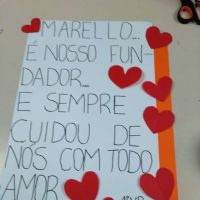 MARELLO...
É NOSSO FUN-
DADOR...
E SEMPRE
CUIDOU DE
NÓS COM TODO
AMOR